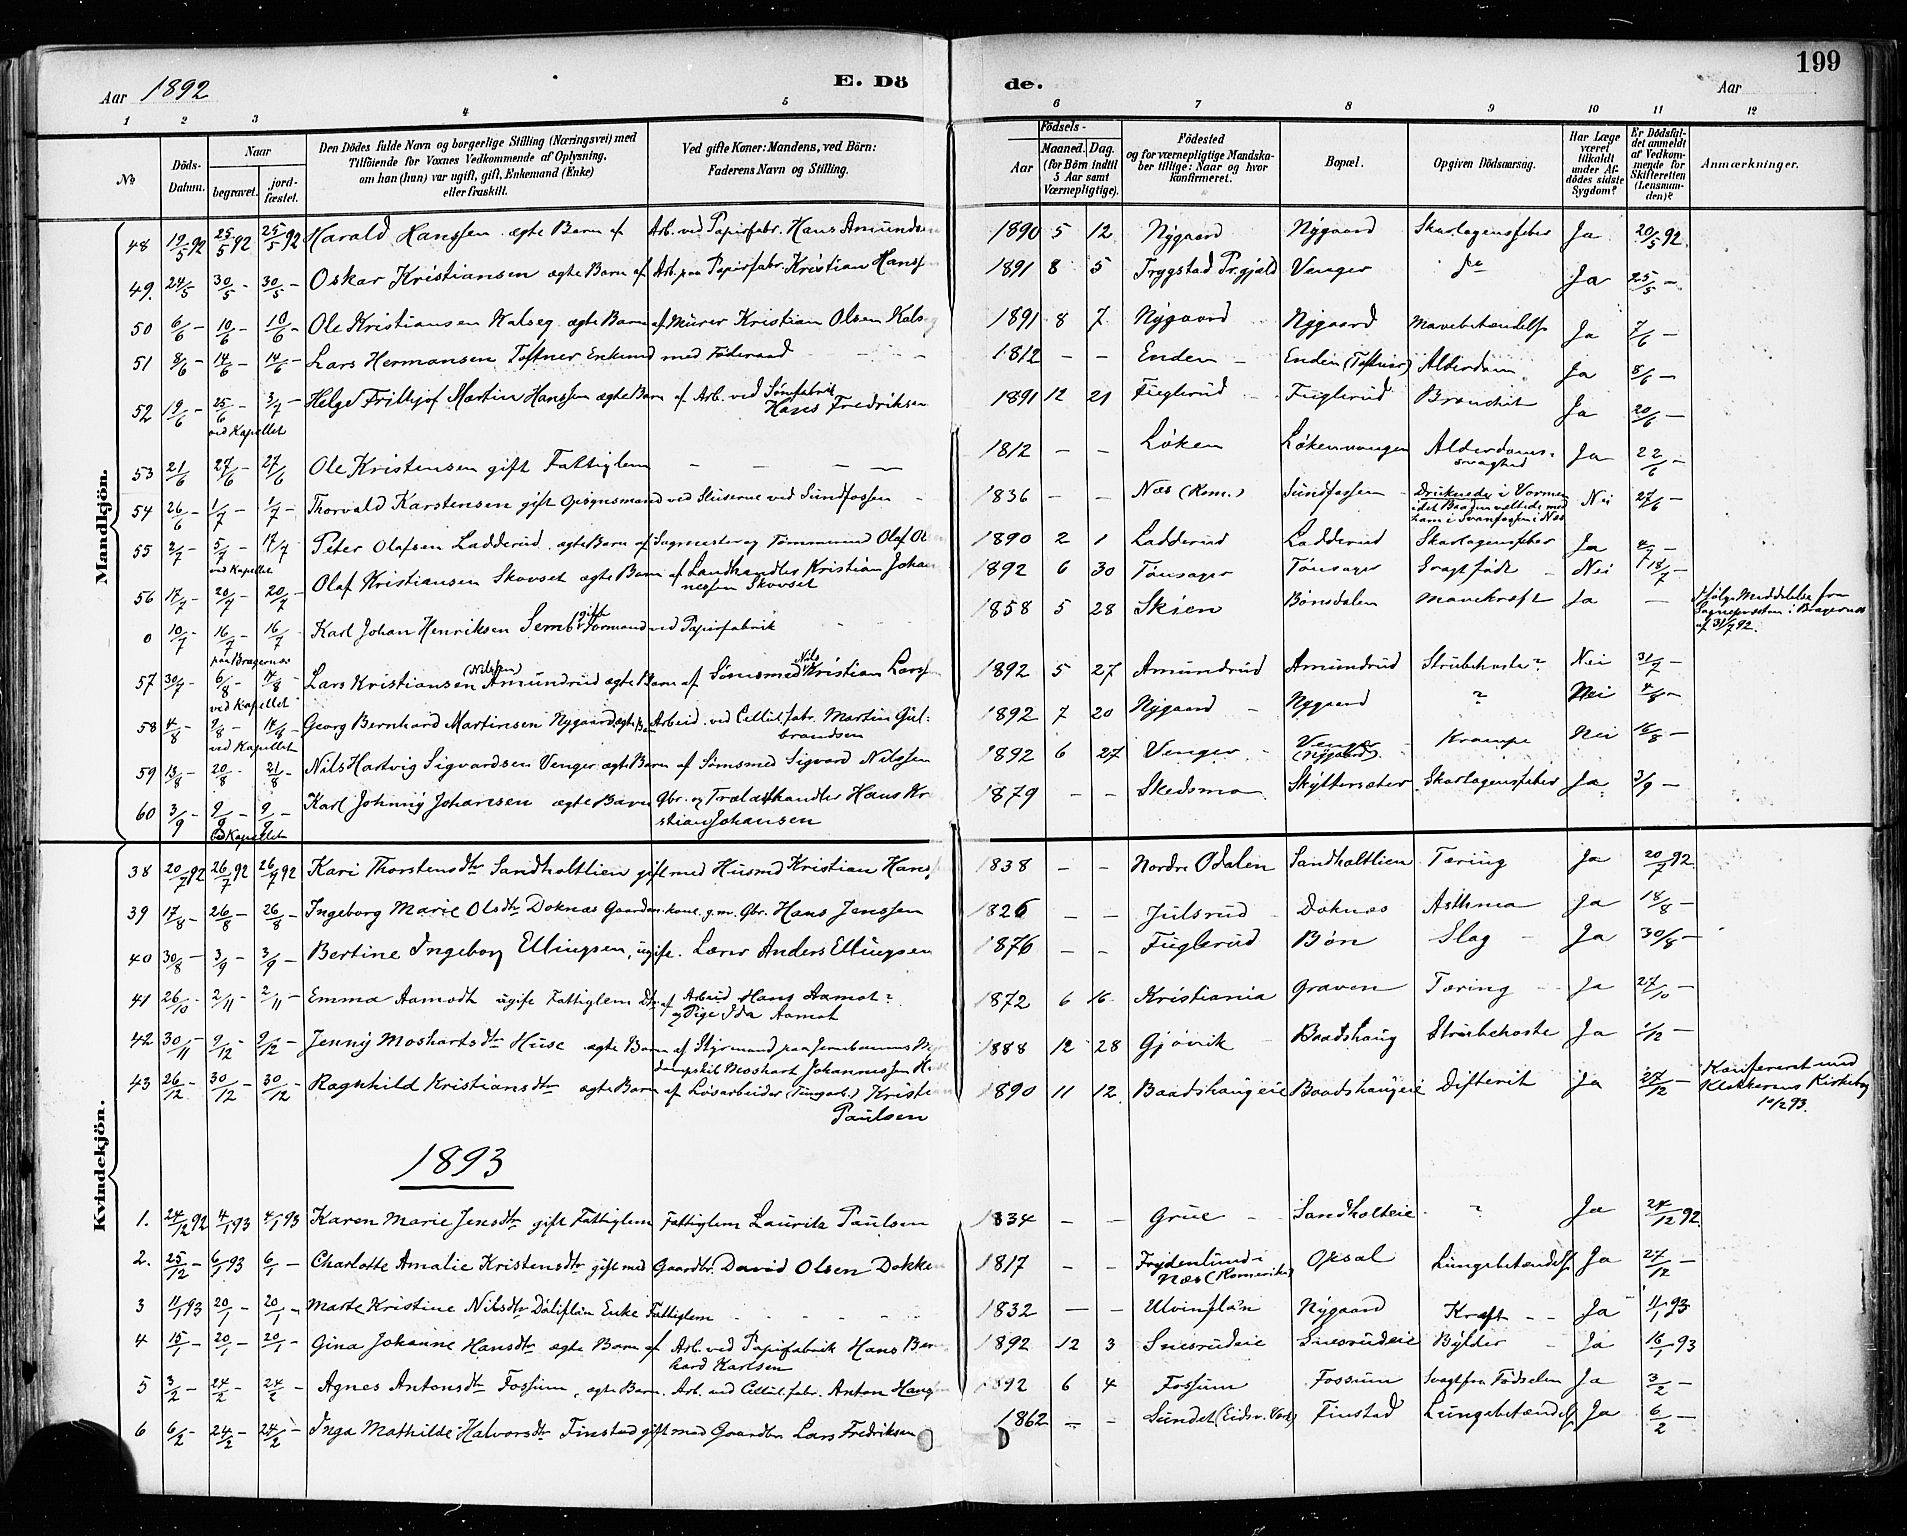 199
Aar 1892
E. Dö
de.
Aar
1 2 3 4 5 6 7 8 9 10 11 12
No
Döds-Datum.
Naar
begravet.
jord-fæstet.
Den Dödes fulde Navn og borgerlige Stilling (Næringsvei) med
Tilföiende for Voxnes Vedkommende af Oplysning,
om han (hun) var ugift, gift, Enkemand (Enke)
eller fraskilt.
Ved gifte Koner: Mandens, ved Börn:
Faderens Navn og Stilling.
Födsels-
Aar
Maaned. Dag.
(for Börn indtil
5 Aar samt
Værnepligtige).
Födested
og for værnepligtige Mandska-
ber tillige: Naar og hvor
konfirmeret.
Bopæl.
Opgiven Dödsaarsag.
Har Læge
været
tilkaldt
under Af-
dödes sidste
Sygdom?
Er Dödsfal-
det anmeldt
af Vedkom-
mende for
Skifteretten
(Lensman-
den)?
Anmærkninger.
Mandkjön.
48 19/5 92 25/5 92 25/5 92 Harald Hanssen ægte Barn af Arb. ved Papirfabr. Hans Amundsen 1890 5 12 Nygaard Nygaard Skarlagensfeber Ja 20/5 92.
49. 24/5 30/5 - 30/5 - Oskar Kristiansen ægte Barn af Arb. paa Papirfabr. Kristian Hanss 1891 8 5 Trygstad Pr.gjæld Venger Ja 25/5 -
50 6/6 - 10/6 - 10/6 - Ole Kristiansen Kalseg ægte Barn af Murer Kristian Olsen Kalseg 1891 8 7 Nygaard Nygaard Mavebetændelse Ja 7/6 -
51 8/6 - 14/6 - 14/6 - Lars Hermansen Toftner Enkemd med Föderaad 1812 - - Enden Enden (Toftner) Alderdom Ja 8/6 -
52 19/6 - 25/6 - 3/7 - Helge Frithjof Martin Hanssen ægte Barn af Arb. ved Sömfabrik Hans Fredriksen 1891 12 21 Fuglerud Fuglerud Bronchit Ja 20/6 -
ved Kapellet
53 21/6 27/6 - 27/6 Ole Kristensen gift Fattiglem - - - 1812 - - Löken Lökenvangen Alderdoms-svaghed Ja 22/6 -
54 26/6 - 1/7 - 1/7 - Thorvald Karstensen gift Opsynsmand ved Sluserne ved Sundfossen 1836 - - Næs (Rom.) Sundfossen Druknede i Vormen idet Baaden veltede med ham i Svanfossen i Næs Nei 27/6 -
55 2/7 - 5/7 - 17/7 Peter Olafsen Ladderud ægte Barn af Sagmester og Tömmermd Olaf Olsen 1890 2 1 Ladderud Ladderud Skarlagensfeber Ja 4/7 -
ved Kapellet
56 17/7 - 20/7 - 20/7 - Olaf Kristiansen Skovset ægte Barn af Landhandler Kristian Johannessen Skovset 1892 6 30 Tönsager Tönsager Svagt födt Nei 18/7 -
0 10/7 - 16/7 - 16/7 - Karl Johan Henriksen Semb gift Formand ved Papirfabrik 1858 5 28 Skien Bönsdalen Mavekræft Ja - Ifölge Meddelelse fra Sognepresten i Bragernes af 31/7 92.
paa Bragernæs
57 30/7 - 6/8 - 14/8 - Lars Kristiansen (Nilssen) Amundrud ægte Barn af Sömsmed Nils Kristian Larssen 1892 5 27 Amundrud Amundrud Strubehoste? Nei 31/7 -
ved Kapellet
58 4/8 - 9/8 - 14/8 - Georg Bernhard Martinsen Nygaard ægte Barn Arbeid. ved Cellul.fabr. Martin Gulbrandsen 1892 7 20 Nygaard Nygaard ? Nei 4/8 -
ved Kapellet
59 13/8 - 20/8 - 21/8 - Nils Hartvig Sigvardsen Venger ægte Barn af Sömsmed Sigvard Nilssen 1892 6 27 Venger Venger (Nygaard) Krampe Nei 16/8 -
60 3/9 - 9/9 - 9/9 - Karl Johnny Johansen ægte Barn Gbr. og Trælasthandler Hans Kristian Johansen 1879 - - Skedsmo Skyttersæter Skarlagensfeber Ja 3/9 -
ved Kapellet
Kvindekjön.
38 20/7 92 26/7 92 26/7 92 Kari Thorstensdtr Sandholtlien gift med Husmd Kristian Hans 1838 - - Nordre Odalen Sandholtlien Tæring Ja 20/7 92.
39 17/8 - 26/8 - 26/8 - Ingeborg Marie Olsdtr Doknæs Gaardmkone g.m. Gbr. Hans Jenssen 1826 - - Julsrud Doknæs Asthma Ja 18/8 -
40 30/8 - 3/9 - 3/9 - Bertine Ingeborg Ellingsen, ugift. Lærer Anders Ellingsen 1876 - - Fuglerud Bön Slag Ja 30/8 -
41 26/10 - 2/11 - 2/11 - Emma Aamodt ugift Fattiglem Dtr af Arbeid Hans Aamot? og Pige Ida Aamot 1872 6 16 Kristiania Graven Tæring Ja 27/10 -
42 30/11 - 9/12 - 9/12 - Jenny Moshartsdtr Huse ægte Barn af Styrmand paa Jernbanens dampskib Moshart Johannessen Huse 1888 12 28 Gjövik Baadshaug Strubehoste Ja 1/12 -
43 26/12 - 30/12 - 30/12 - Ragnhild Kristiansdtr ægte Barn af Lösarbeider Kristian Paulsen 1890 11 12 Baadshaugeie Baadshaugeie Difterit Ja 27/12 - Konfereret med Klokkerens Kirkebog 10/2 93.
1893
1. 24/12 92 4/1 93 4/1 93 Karen Marie Jensdtr gift Fattiglem Fattiglem Lauritz Paulsen 1834 - - Grue Sandholteie ? Ja 24/12 92.
2. 25/12 6/1 93 6/1 - Charlotte Amalie Kristensdtr gift med Gaardbr. David Olsen Dokken 1817 - - Frydenlund i Næs (Romerike) Opsal Lungebetændelse Ja 27/12 -
3 11/1 93 20/1 - 20/1 - Marte Kristine Nilsdtr Döliflån Enke Fattiglem 1832 - - Ulvinflån Nygaard Kræft Ja 11/1 93
4 15/1 - 20/1 - 20/1 - Gina Johanne Hansdtr ægte Barn af Arb. ved Papirfabrik Hans Bernhard Karlsen 1892 12 3 Snesrudeie Snesrudeie Bylder Ja 16/1 93
5 3/2 - 24/2 - 24/2 - Agnes Antonsdtr Fossum, ægte Barn Arb. ved Cellul.fabr. Anton Hans 1892 6 4 Fossum Fossum Svagt fra Födselen Ja 3/2 -
6 6/2 - 24/2 - 24/2 - Inga Mathilde Halvorsdtr Finstad gift med Gaardbr Lars Fredriksen 1862 - - Sundet (Eidsv. Verk) Finstad Lungebetændelse Ja 6/2 -